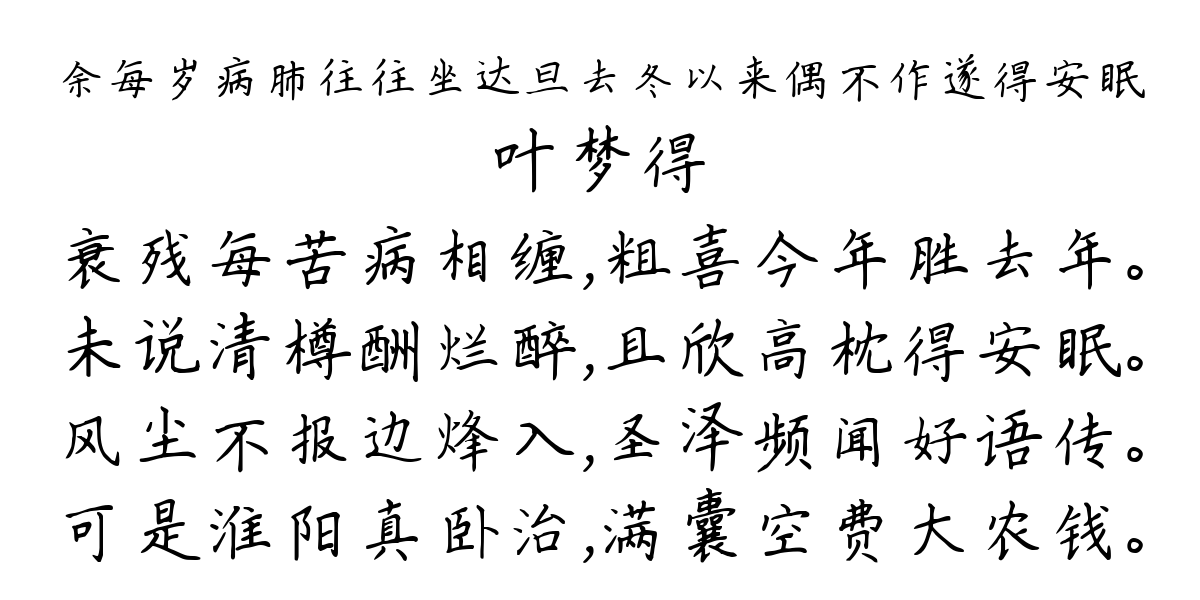 余每岁病肺往往坐达旦去冬以来偶不作遂得安眠
叶梦得
衰残每苦病相缠,粗喜今年胜去年。
未说清樽酬烂醉,且欣高枕得安眠。
风尘不报边烽入,圣泽频闻好语传。
可是淮阳真卧治,满囊空费大农钱。